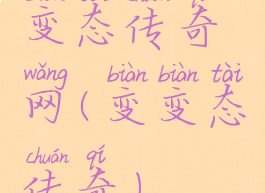 变态传奇
wǎng biàn biàn tài
网(变变态
chuán qí
传奇)